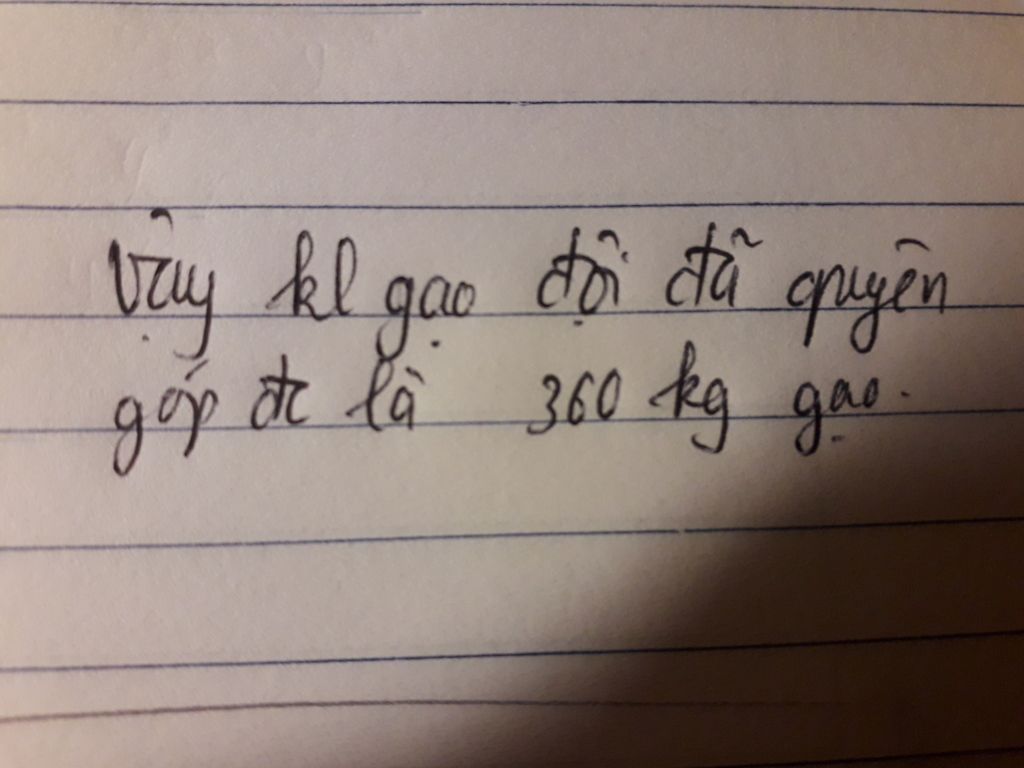 Vậy kl gạo đội đã quyên
góp đc là 360 kg gạo.